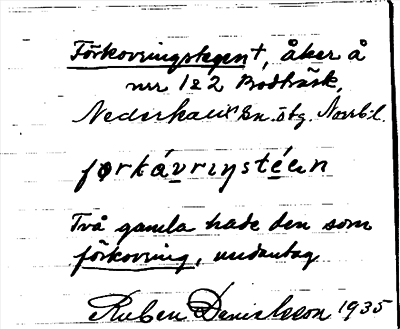 Förkovringstegen+, åker å
nrr 1&2 Bodträsk,
Nederkalix sn. ötg. Norrb. l.
førkávrıŋstéen
Två gamla hade den som
förkovring, undantag
Ruben Danielsson 1935